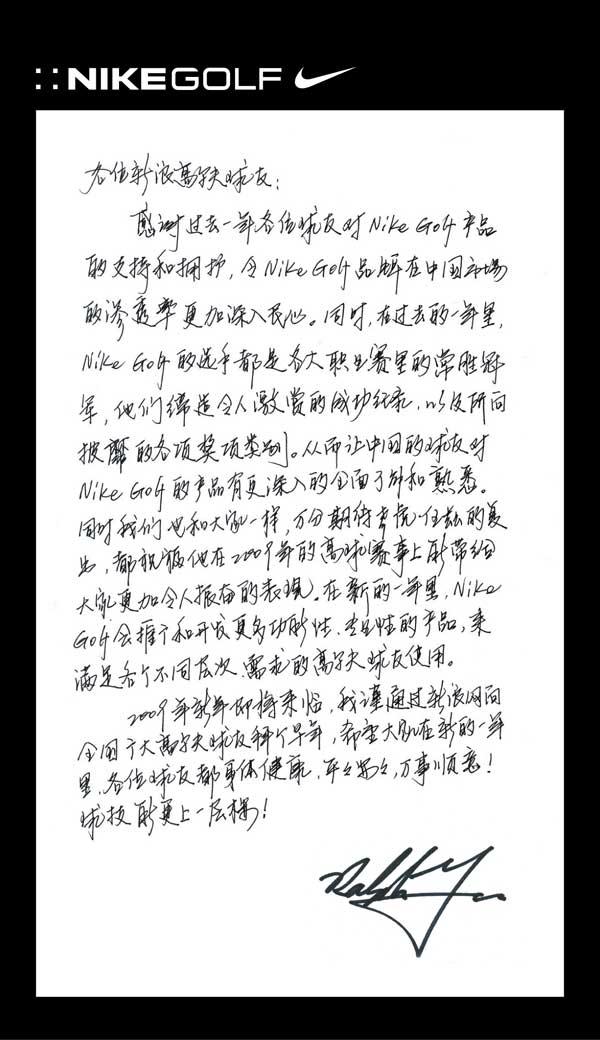 NIKEGOLF
各位新浪高尔夫球友：
感谢过去一年各位球友对Nike Golf产品
的支持和拥护，令Nike Golf品牌在中国市场
的渗透率更加深入民心。同时，在过去的一年里，
Nike Golf的选手都是各大职业赛里的常胜冠
军，他们缔造令人激赏的成功纪录，以及所向
披靡的各项奖项类别。从而让中国的球友对
Nike Golf的产品有更深入的全面了解和熟悉。
同时我们也和大家一样，万分期待老虎-伍兹的复
出，都祝福他在2009年的高球赛事上能带给
大家更加令人振奋的表现。在新的一年里，Nike
Golf会推广和开发更多功能性、专业性的产品，来
满足各个不同层次、需求的高尔夫球友使用。
2009年新年即将来临，我谨通过新浪网向
全国广大高尔夫球友拜个早年，希望大家在新的一年
里，各位球友都身体健康，平平安安，万事顺意！
球技能更上一层楼！